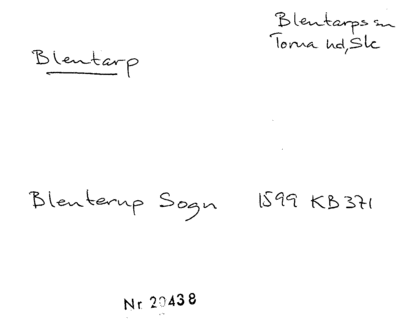 Blentarps sn
Torna hd, Sk
Blentarp
Blenterup Sogn 1599 KB 371
Nr 20438